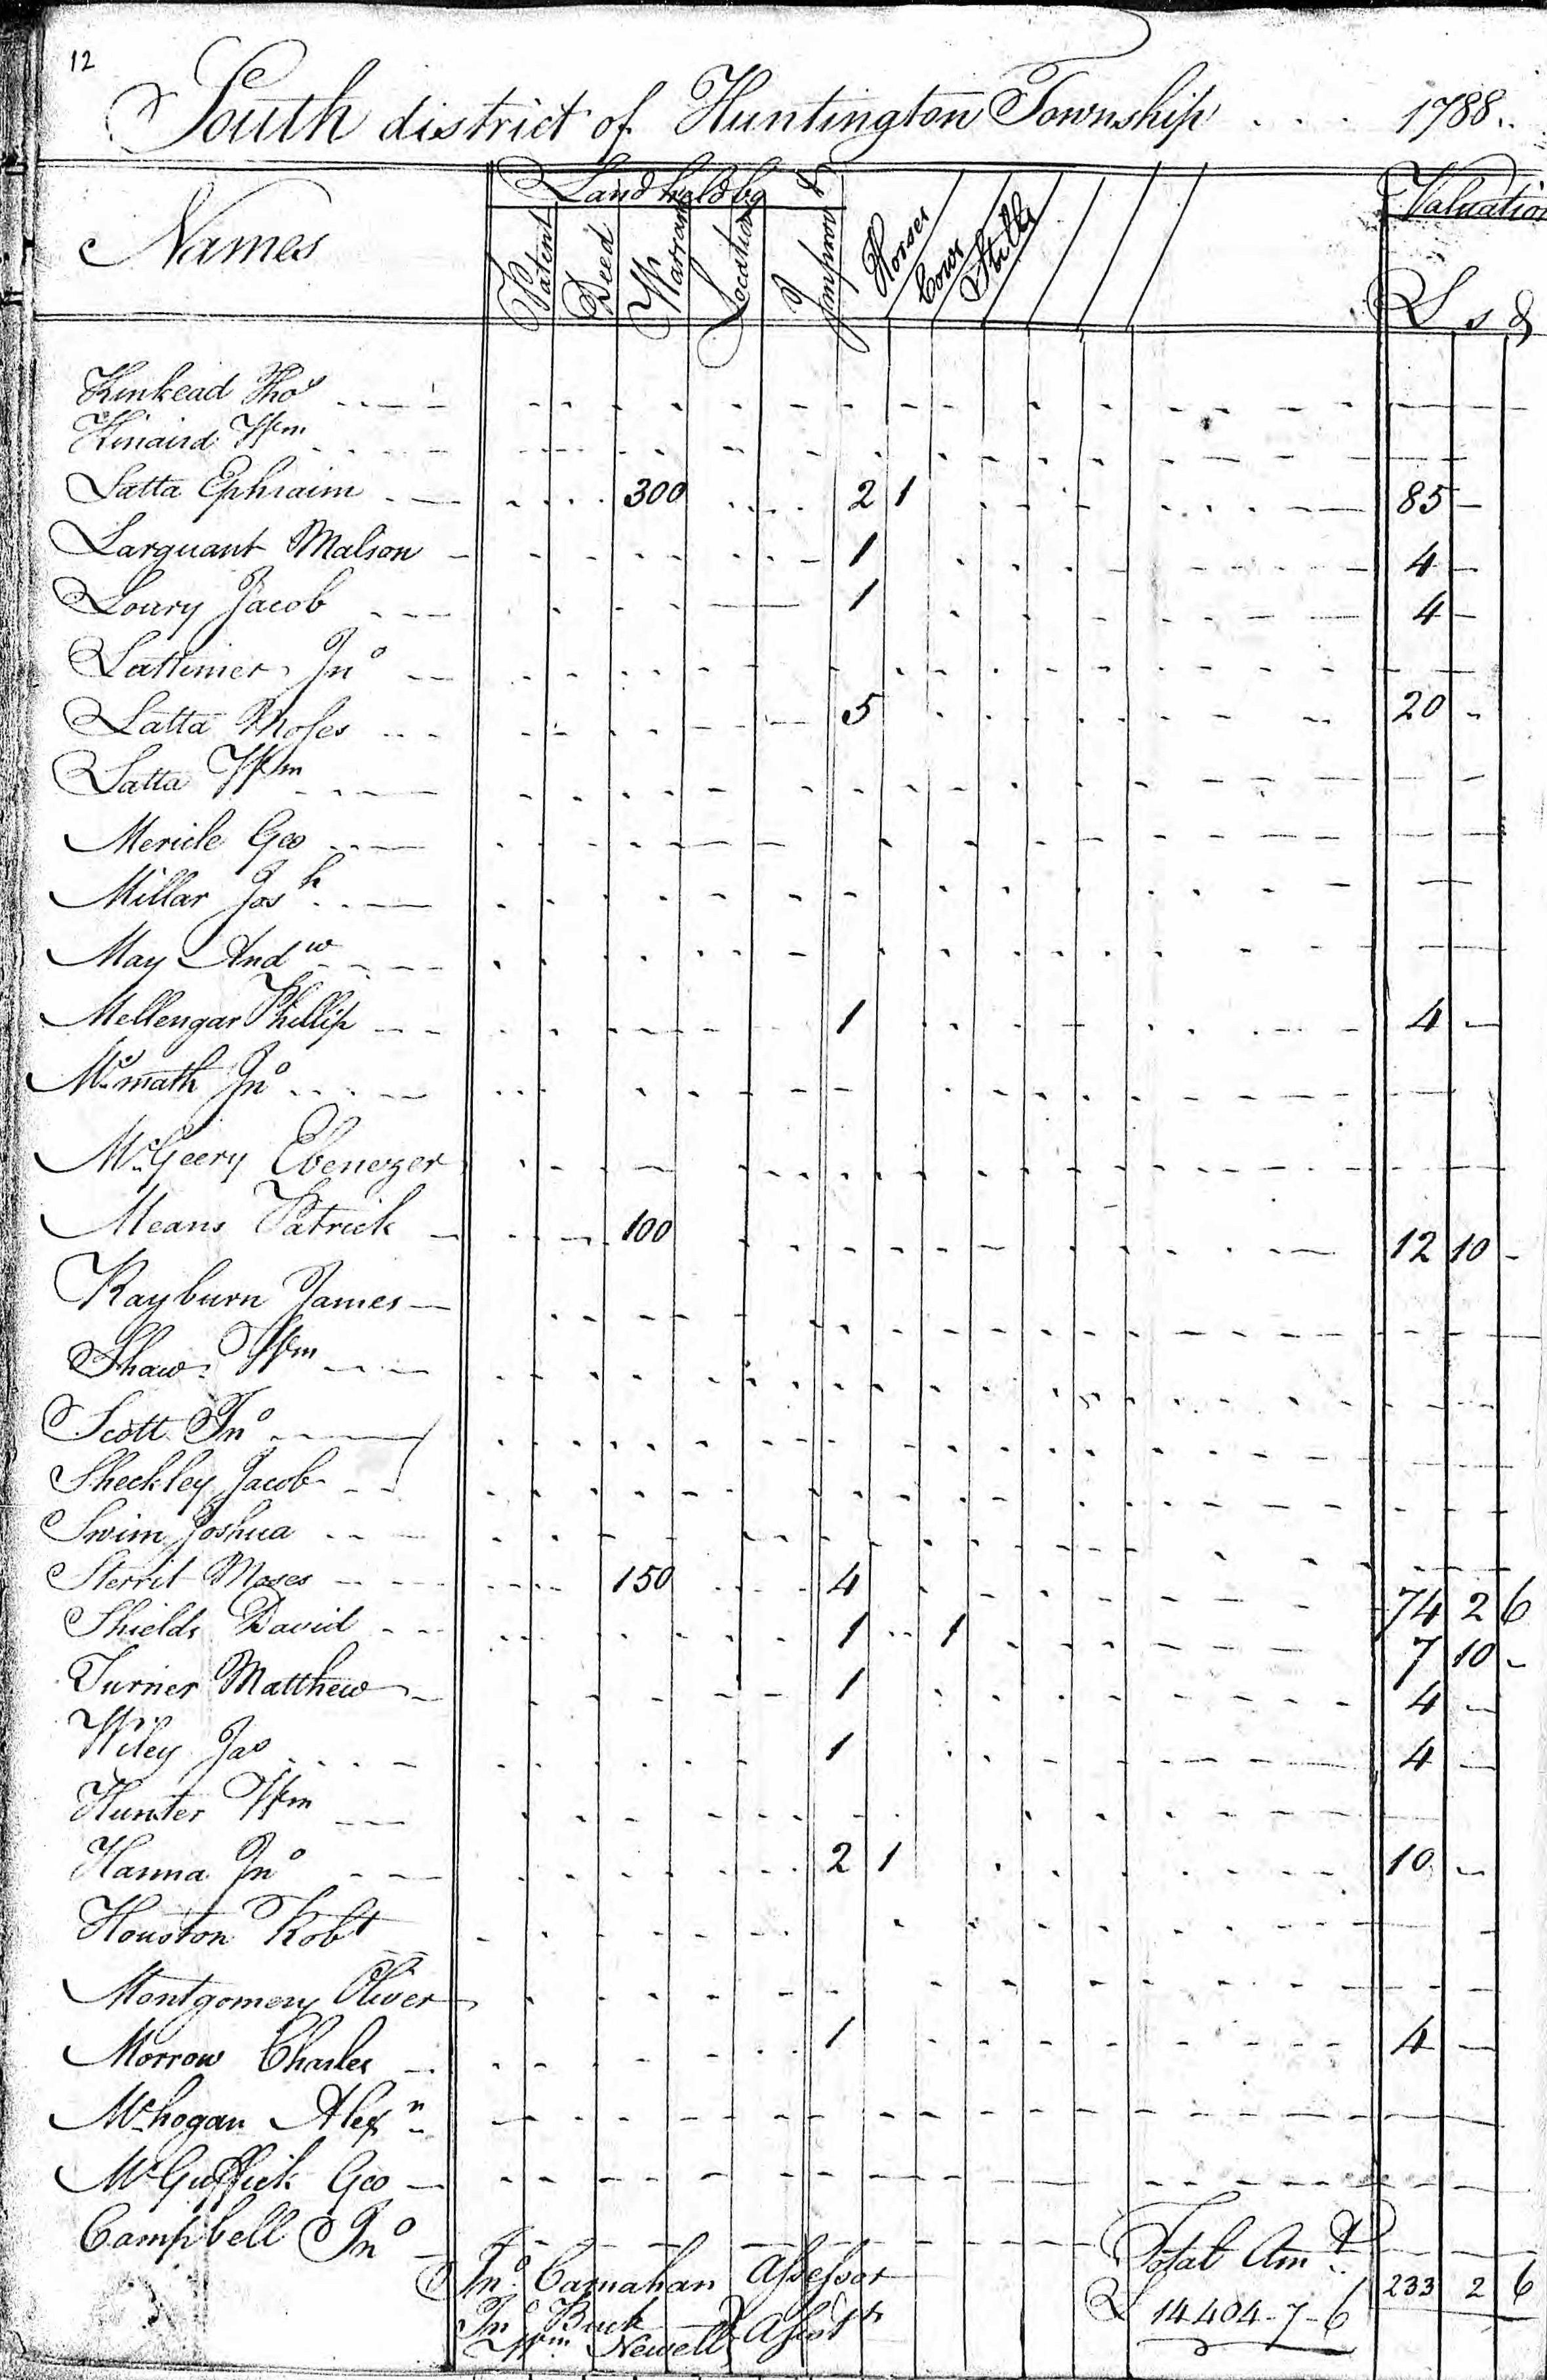 12
South district of Huntington Township 1788
Names Land held by Valuation
Patent Deed Warrant Location Improvt Horses Cows Stills L s d
Kinkead Thos
Kinaird Wm
Latta Ephraim 300 2 1 85
Larguant Malson 1 4
Loury Jacob 1 4
Lattimer Jno
Latta Moses 5 20
Latta Wm
Mericle Geo
Millar Josh
May Andw
Mellengar Phillip 1 4
McMath Jno
McGeery Ebenezer
Means Patrick 100 12 10
Rayburn James
Shaw Wm
Scott Jno
Sheckley Jacob
Swim Joshua
Sterrit Moses 150 4 74 2 6
Shields David 1 1 7 10
Turner Matthew 1 4
Wiley Jas 1 4
Hunter Wm
Hanna Jno 2 1 10
Houston Robt
Montgomery Oliver
Morrow Charles 1 4
Mchogan Alexn
McGuffick Geo
Campbell Jno
Jno Carnahan Assessor Total Amt 233 2 6
Jno Buck
Wm Newell Assists L 14404-7-6